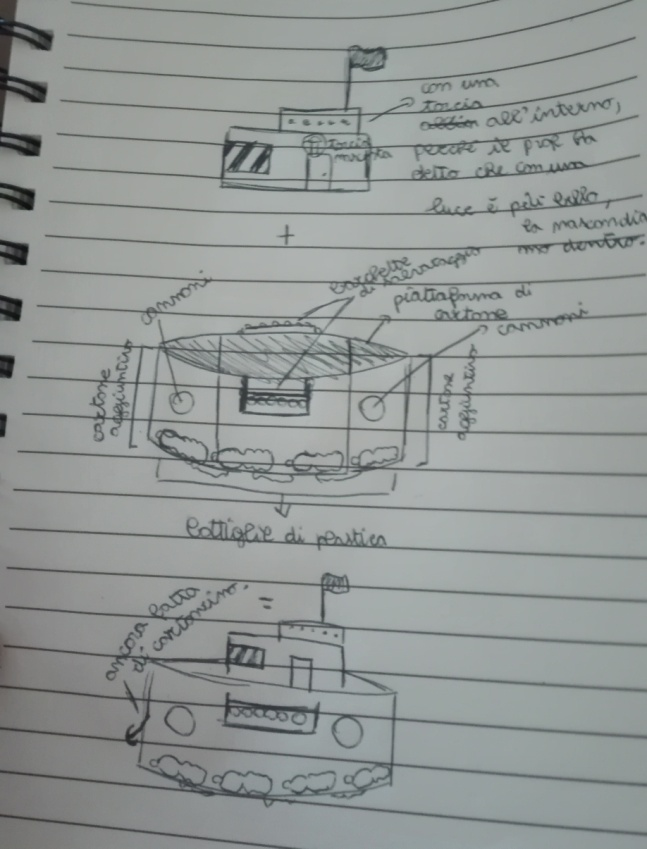 con una
torcia
all'interno,
torcia
perché il prof ha
detto che con una
luce è più bello,
la nascondia
mo dentro.
+
barchette
di salvataggio
cannoni
piattaforma di
cartone
cannoni
cartone
aggiuntivo
cartone
aggiuntivo
bottiglie di plastica
=
ancora fatta
di cartoncino.